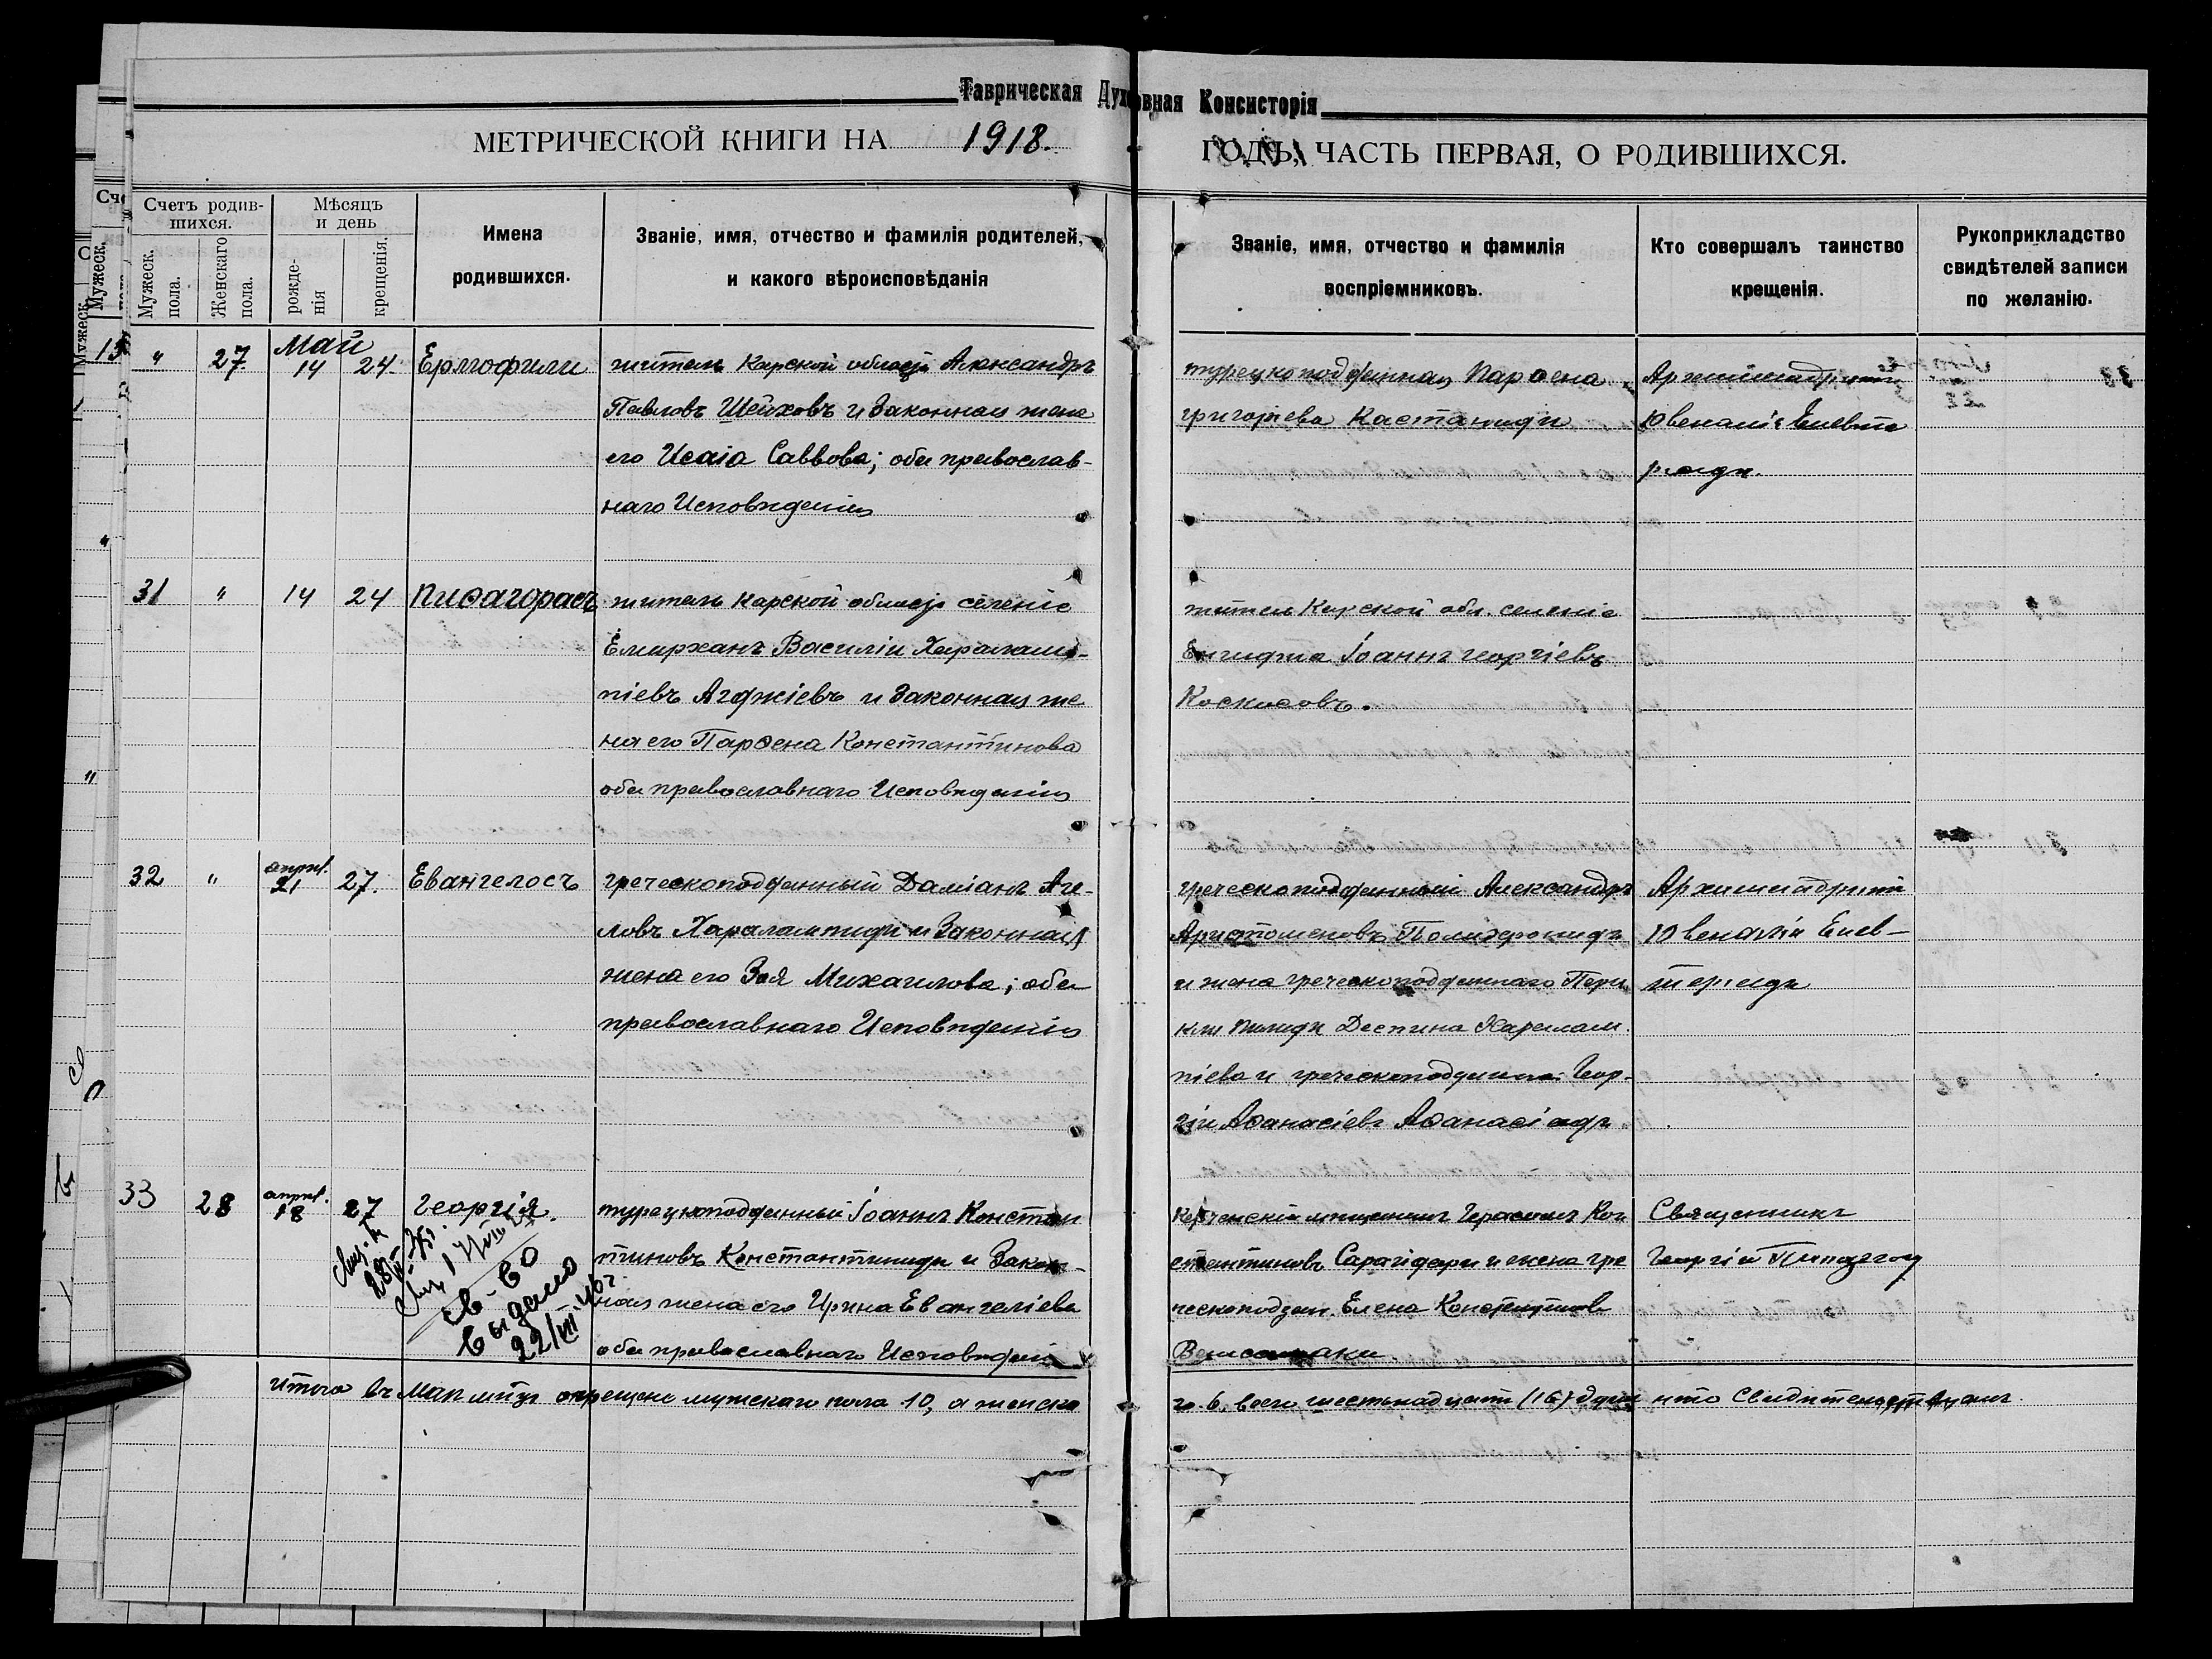 Таврическая Духовная Консисторія
МЕТРИЧЕСКОЙ КНИГИ НА 1918. ГОДЪ, ЧАСТЬ ПЕРВАЯ, О РОДИВШИХСЯ.
Счетъ родив-
шихся.
Мужеск.
пола.
Женскаго
пола.
Мѣсяцъ
и день
рожде-
нія
крещенія.
Имена
родившихся.
Званіе, имя, отчество и фамилія родителей,
и какого вѣроисповѣданія
Званіе, имя, отчество и фамилія
воспріемниковъ.
Кто совершалъ таинство
крещенія.
Рукоприкладство
свидѣтелей записи
по желанію.
Май
" 27. 14 24. Ермофили
житель Карской области Александръ
Павловъ Шейховъ и законная жена
его Исаіа Саввова; оба православ-
наго Исповѣданія
турецкоподданная Парѳена
григорьева Кастаниди
Архимандритъ
Ювеналій
31 " 14 24 Пиѳагорасъ
житель Карской области селеніе
Емирханъ Василій Харалам-
піевъ Агджіевъ и законная же
на его Парѳена Константинова
оба православнаго Исповѣданія
житель Карской обл. селеніе
Іоаннъ Георгіевъ
Коскосовъ.
32 " апрѣл. 21 27. Евангелосъ
греческоподданный Даміанъ Аге-
ловъ Харалампиди и Законная
жена его Зоя Михаилова; оба
православнаго Исповѣданія
греческоподданный Александръ
Аристоменовъ
и жена греческоподданнаго Пери
Деспина Харалам
піева и греческоподданный Геор-
гій Аѳанасіевъ Аѳанасіади
Архимандритъ
Ювеналій Елев-
теріади
33 28 апрѣл. 18 27 Георгія
св-во
выдано
22/VII 46г
турецкоподданный Іоаннъ Констан
тиновъ Константиниди и Закон-
ная жена его Ирина Евангеліева
оба православнаго Исповѣданія
Керченскій мещанинъ Герасимъ Кон
стантиновъ и жена гре
ческоподдан. Елена Константинова
Священникъ
Георгій
Итого въ Маѣ м-цѣ окрещено мужскаго пола 10, а женска
го 6. всего шестьнадцать (16) душъ что Свидѣтельствуемъ.